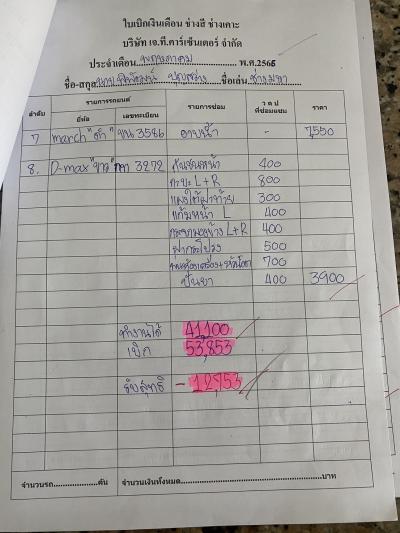 ใบเบิกเงินเดือน ช่างสี ช่างเคาะ
บริษัท เจ.ที.คาร์เซ็นเตอร์ จำกัด
ประจำเดือน พฤษภาคม พ.ศ.2565
ชื่อ-สกุล ชื่อเล่น ช่าง
ลำดับ รายการรถยนต์ รายการซ่อม ว ด ป ที่ซ่อมแซม ราคา
ยี่ห้อ เลขทะเบียน
7 march "ดำ" ขน 3586 อาบน้ำ - 7,550
8. D-max "ขาว" 3272 กันชนหน้า 400
กะบะ L+R 800
แผงใต้ฝาท้าย 300
แก้มหน้า L 400
กระจกมองข้าง L+R 400
ฝากระโปรง 500
700
400 3900
ทำงานได้ 41,100
เบิก 53,853
รับสุทธิ - 12,753
จำนวนรถ....................คัน จำนวนเงินทั้งหมด.............................................บาท